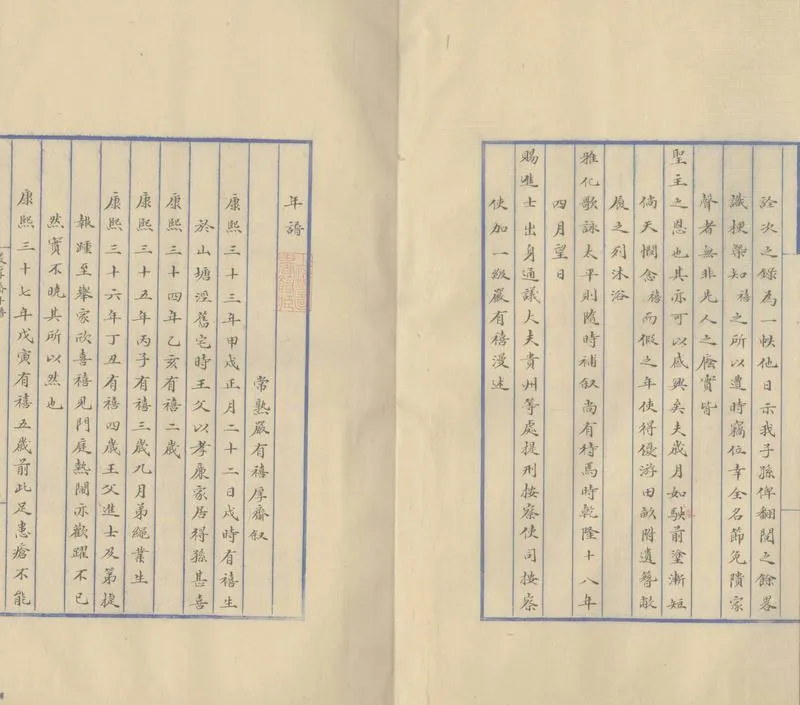 詮次之錄為一帙他日示我子孫俾翻閱之餘畧
識梗槩知禧之所以遭時竊位幸全名節免隤家
聲者無非先人之廕實皆
聖主之恩也其亦可以感興矣夫歲月如駛前塗漸短
倘天憫念禧而假之年使得優游田畝附遺簪敝
履之列沐浴
雅化歌詠太平則隨時補叙尚有待焉時乾隆十八年
四月望日
賜進士出身通議大夫貴州等處提刑按察使司按察
使加一級嚴有禧漫述
年譜
常熟嚴有禧厚齋叙
康熙三十三年甲戌正月二十二日戌時有禧生
於山塘涇舊宅時王父以孝廉家居得孫甚喜
康熙三十四年乙亥有禧二歲
康熙三十五年丙子有禧三歲九月弟繩業生
康熙三十六年丁丑有禧四歲王父進士及第捷
報踵至舉家欣喜禧見門庭熱鬧亦歡躍不已
然實不曉其所以然也
康熙三十七年戊寅有禧五歲前此足患瘡不能